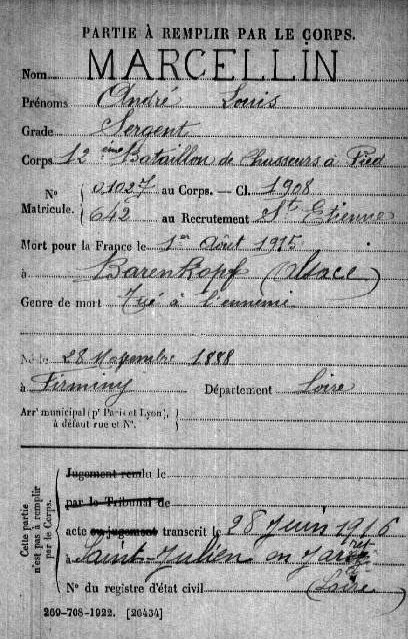 PARTIE À REMPLIR PAR LE CORPS.
Nom MARCELLIN
Prénoms André Louis
Grade Sergent
Corps 12ème Bataillon de Chasseurs à Pied
N° Matricule. { 01027 au Corps. — Cl. 1908
642 au Recrutement St Etienne
Mort pour la France le 1er Août 1915
à Barenkopf (Alsace)
Genre de mort Tué à l'ennemi
Né le 28 Novembre 1888
à Firminy Département Loire
Arrt municipal (pr Paris et Lyon), à défaut rue et N°. }
Cette partie n'est pas à remplir par le Corps.
Jugement rendu le
par le Tribunal de
acte ou jugement transcrit le 28 Juin 1916
à Saint-Julien en Jarret
(Loire)
N° du registre d'état civil
269-708-1922. [26434]